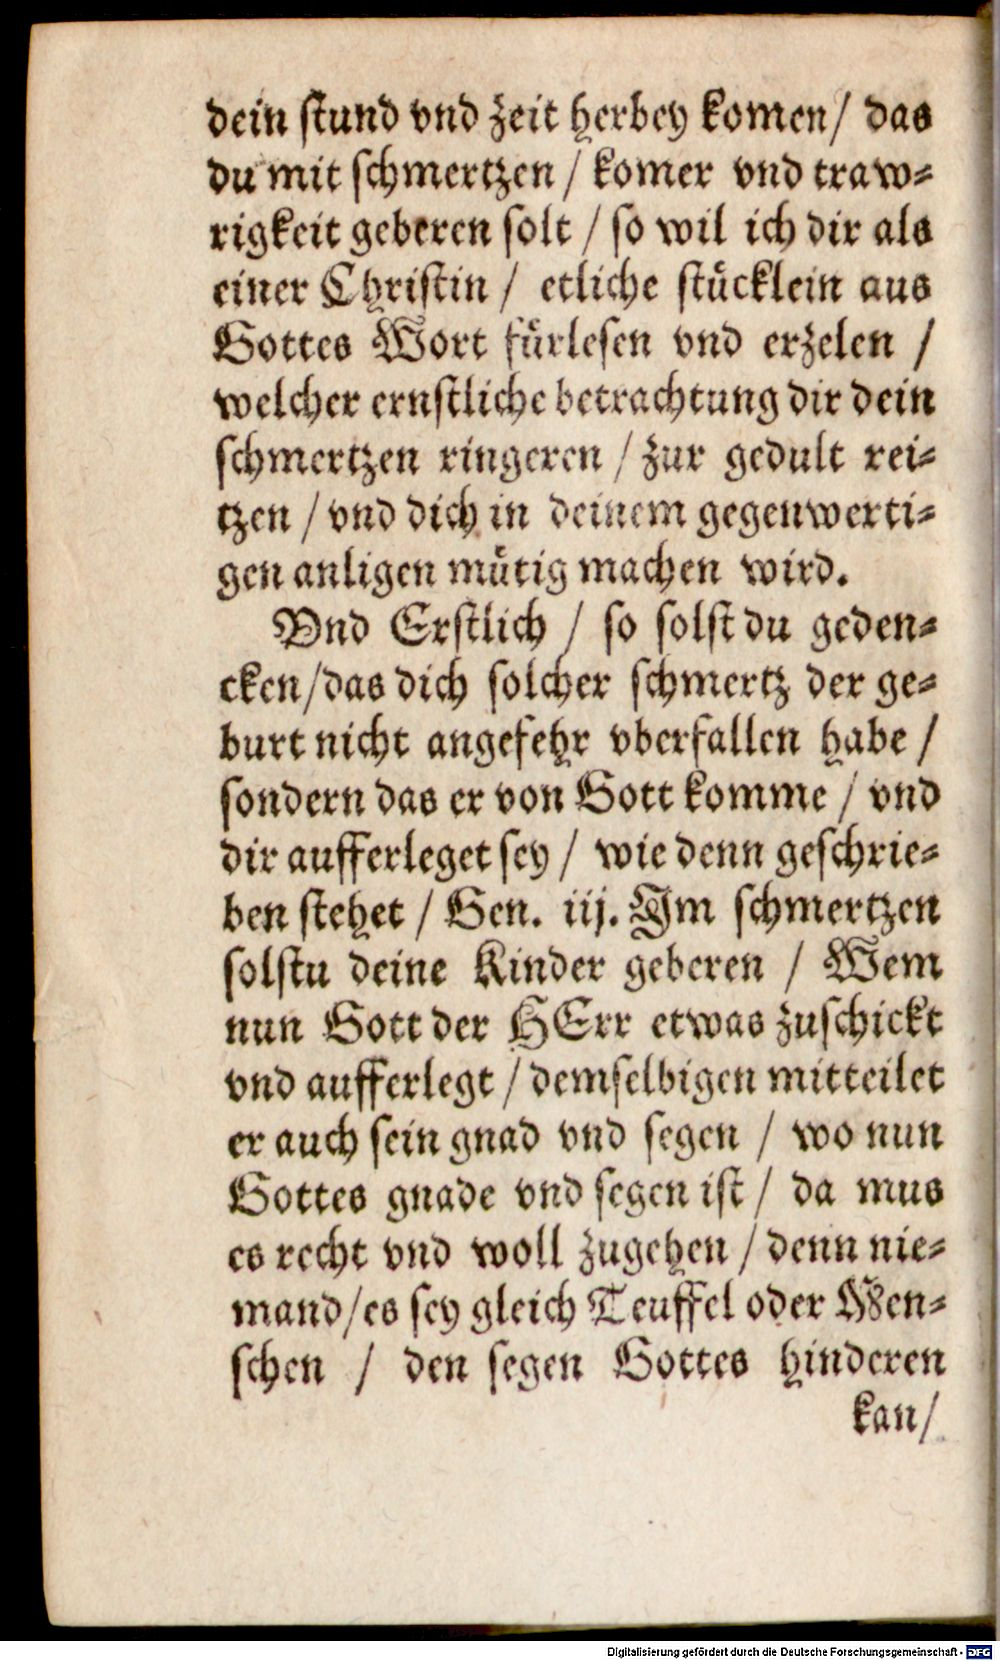 dein stund vnd zeit herbey komen/ das
du mit schmertzen / komer vnd traw⸗
rigkeit geberen solt / so wil ich dir als
einer Christin / etliche stücklein aus
Gottes Wort fürlesen vnd erzelen /
welcher ernstliche betrachtung dir dein
schmertzen ringeren / zur gedult rei⸗
tzen / vnd dich in deinem gegenwerti⸗
gen anligen mütig machen wird.
Vnd Erstlich / so solst du geden⸗
cken/das dich solcher schmertz der ge⸗
burt nicht angefehr vberfallen habe /
sondern das er von Gott komme / vnd
dir aufferleget sey / wie denn geschrie⸗
ben stehet / Gen. iij. Im schmertzen
solstu deine Kinder geberen / Wem
nun Gott der HErr etwas zuschickt
vnd aufferlegt / demselbigen mitteilet
er auch sein gnad vnd segen / wo nun
Gottes gnade vnd segen ist / da mus
es recht vnd woll zugehen / denn nie⸗
mand/es sey gleich Teuffel oder Men⸗
schen / den segen Gottes hinderen
kan/
Digitalisierung gefördert durch die Deutsche Forschungsgemeinschaft - DFG